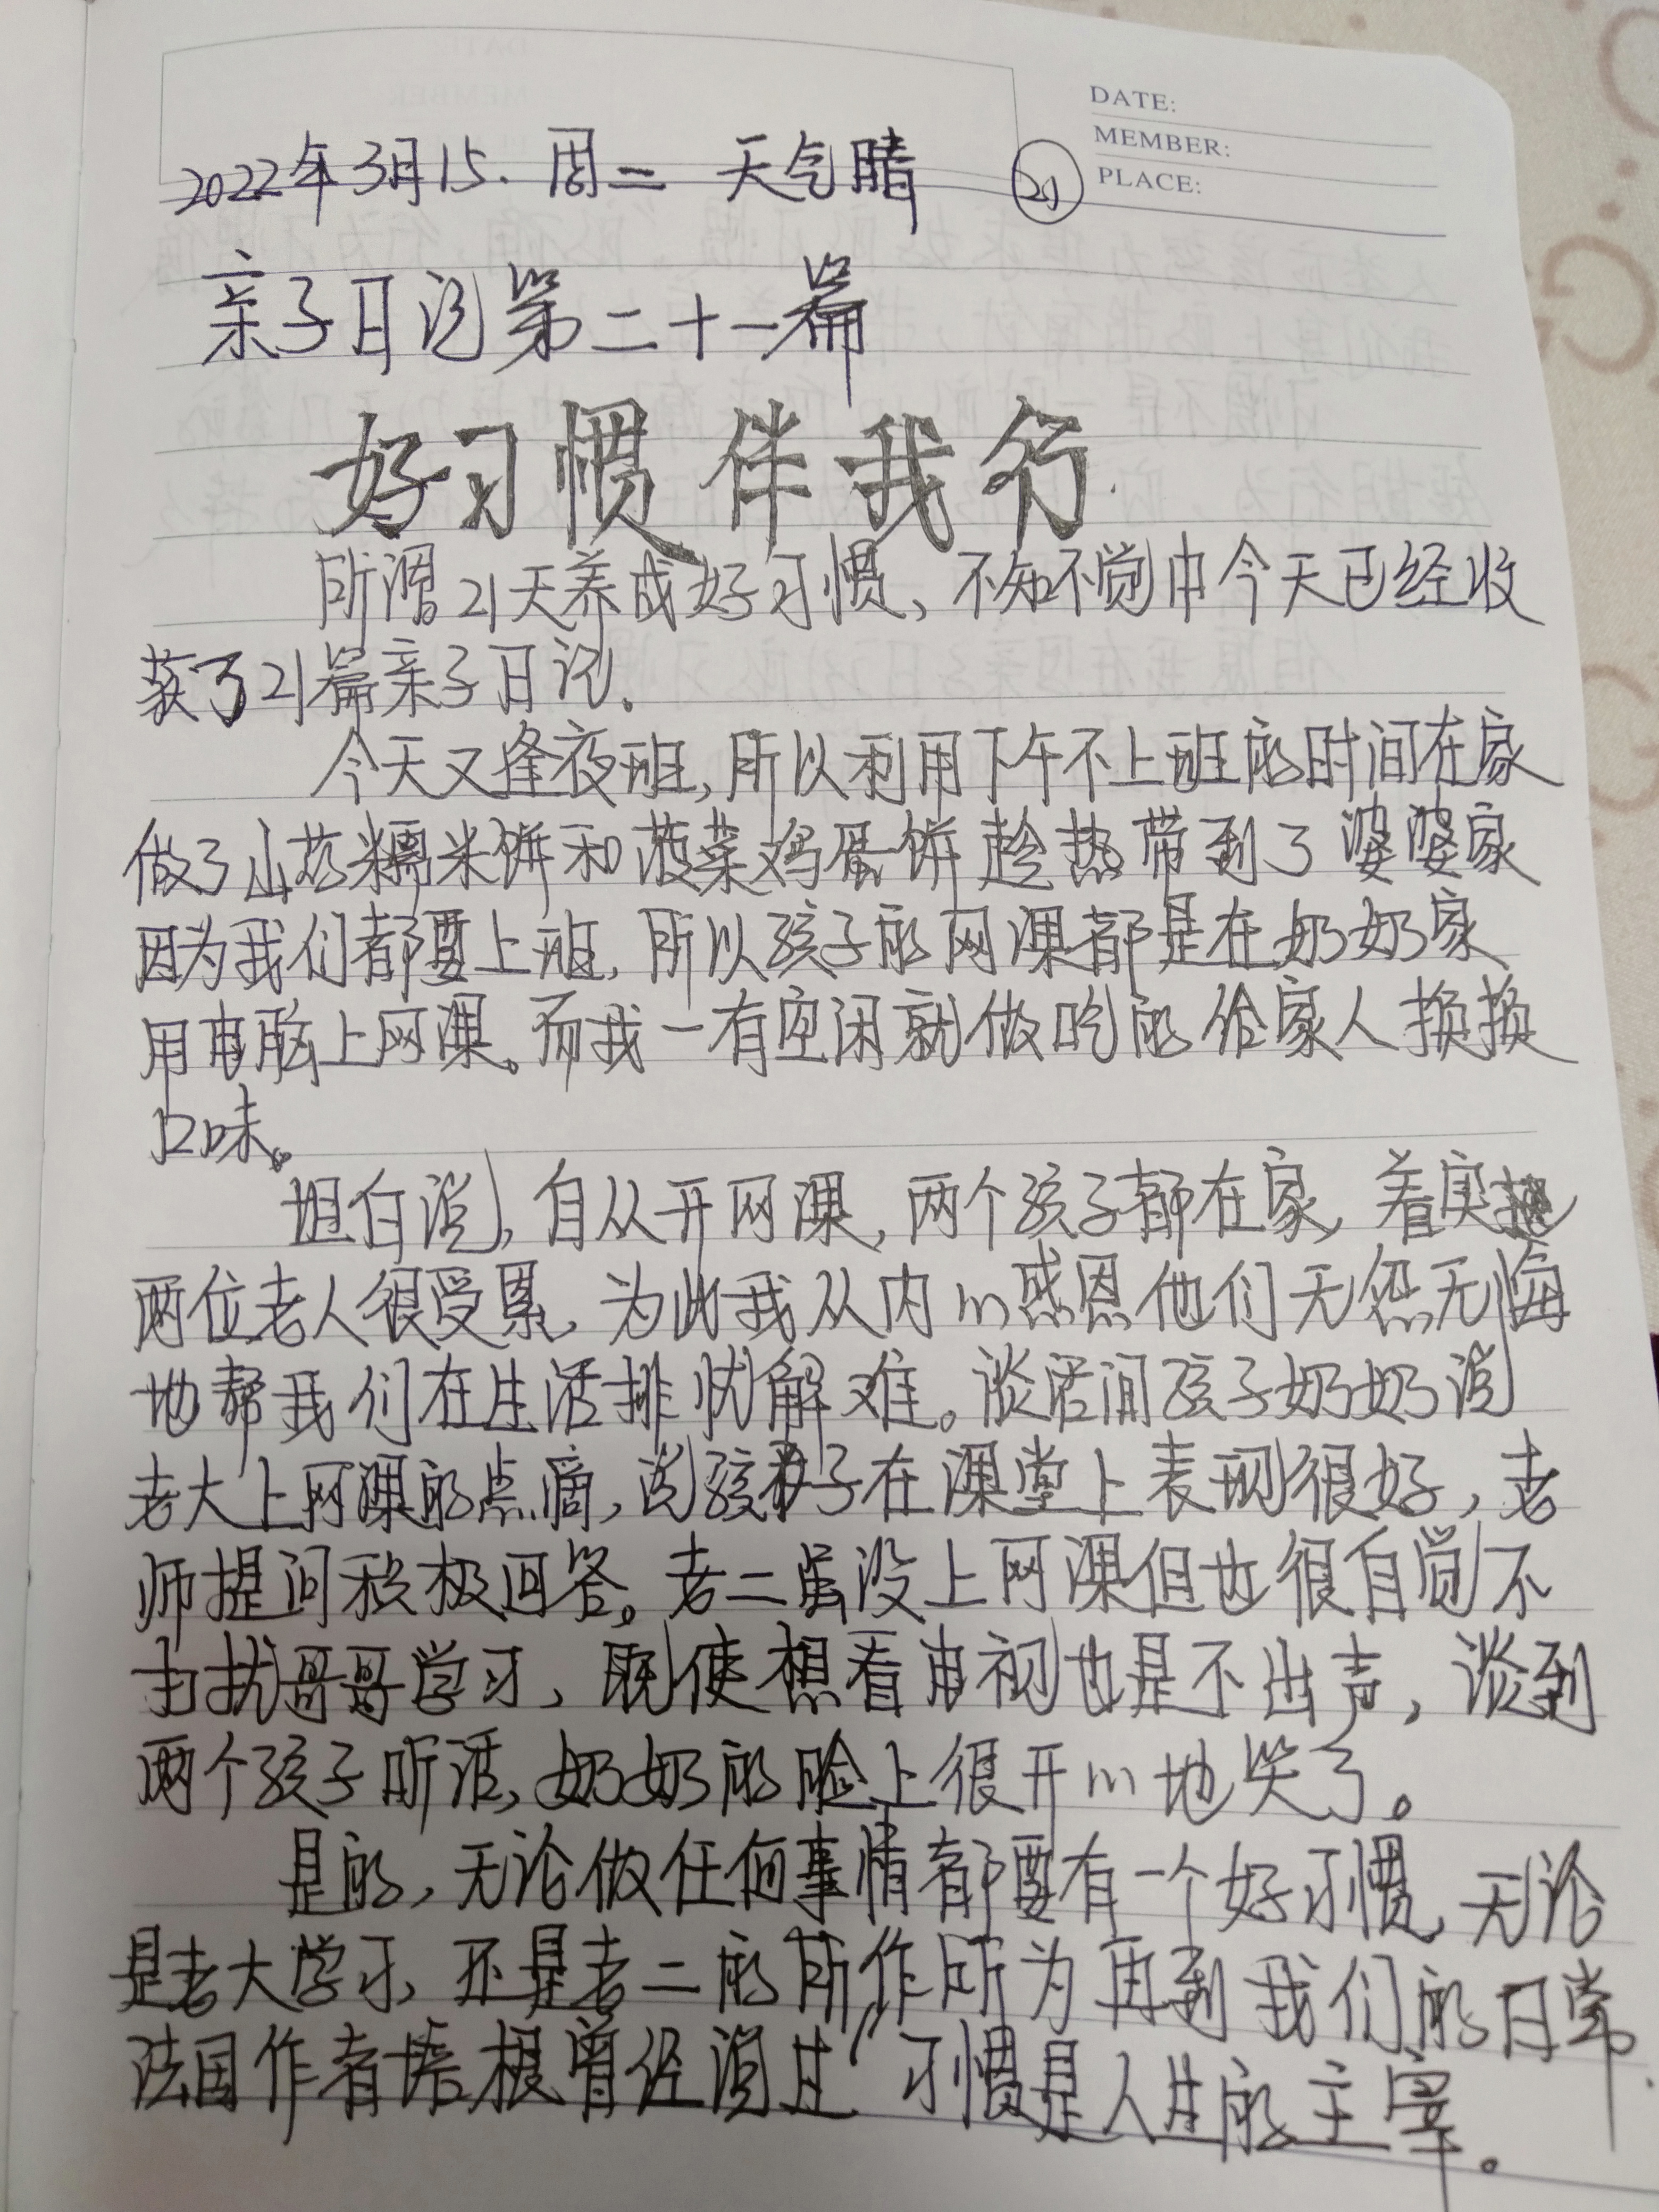 DATE:
MEMBER:
PLACE:
2022年3月15. 周二 天气晴
21
亲子日记第二十一篇
好习惯伴我行.
所谓21天养成好习惯、不知不觉中今天已经收
获了21篇亲子日记.
今天又逢夜班,所以利用下午不上班的时间在家
做了山药糯米饼和菠菜鸡蛋饼趁热带到了婆婆家
因为我们都要上班,所以孩子的网课都是在奶奶家
用电脑上网课。而我一有空闲就做吃的给家人换换
口味。
坦白说,自从开网课,两个孩子都在家,着实
两位老人很受累,为此我从内心感恩他们无怨无悔
地帮我们在生活排忧解难。谈话间孩子奶奶说
老大上网课的点滴,说孩子在课堂上表现很好,老
师提问积极回答。老二虽没上网课但也很自觉不
打扰哥哥学习、既使想看电视也是不出声,谈到
两个孩子听话,奶奶的脸上很开心地笑了。
是的,无论做任何事情都要有一个好习惯,无论
是老大学习,还是老二的所作所为再到我们的日常.
法国作者培根曾经说过“习惯是人生的主宰。